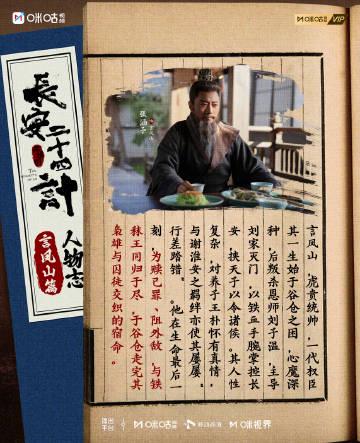 咪咕视频
咪咕视频 VIP
長安
二十四
計
人物志
言凤山篇
张涵予
言凤山，虎贲统帅，一代权臣
其一生始于谷仓之困，心魔深
种，后叛杀恩师刘子温，主导
刘家灭门，以铁血手腕掌控长
安，挟天子以令诸侯。其人性
复杂，对养子王朴怀有真情，
与谢淮安之羁绊亦使其屡屡
行差踏错。他在生命最后一
刻，为赎己罪、阻外敌，与铁
秣王同归于尽，于谷仓走完其
枭雄与囚徒交织的宿命。
咪咕视频
移动高清
咪咕视界